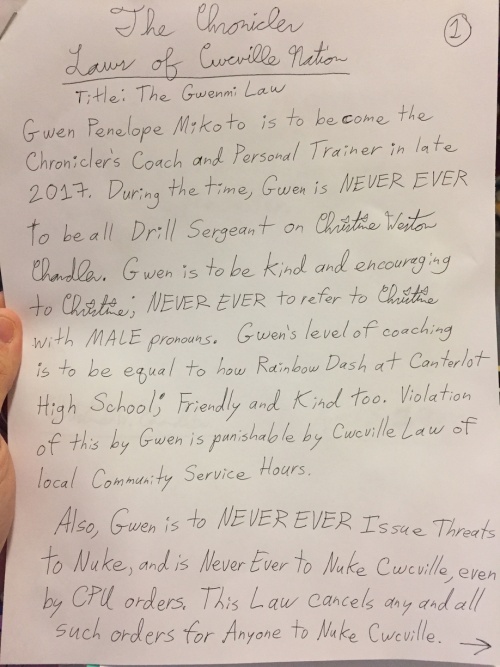 The Chronicler
1
Laws of Cwcville Nation
Title: The Gwenmi Law
Gwen Penelope Mikoto is to become the
Chronicler's Coach and Personal Trainer in late
2017. During the time, Gwen is NEVER EVER
to be all Drill Sergeant on Christine Weston
Chandler. Gwen is to be kind and encouraging
to Christine; NEVER EVER to refer to Christine
with MALE pronouns. Gwen's level of coaching
is to be equal to how Rainbow Dash at Canterlot
High School; Friendly and Kind too. Violation
of this by Gwen is punishable by Cwcville Law of
local Community Service Hours.
Also, Gwen is to NEVER EVER Issue Threats
to Nuke, and is Never Ever to Nuke Cwcville, even
by CPU orders. This Law cancels any and all
such orders for Anyone to Nuke Cwcville. →